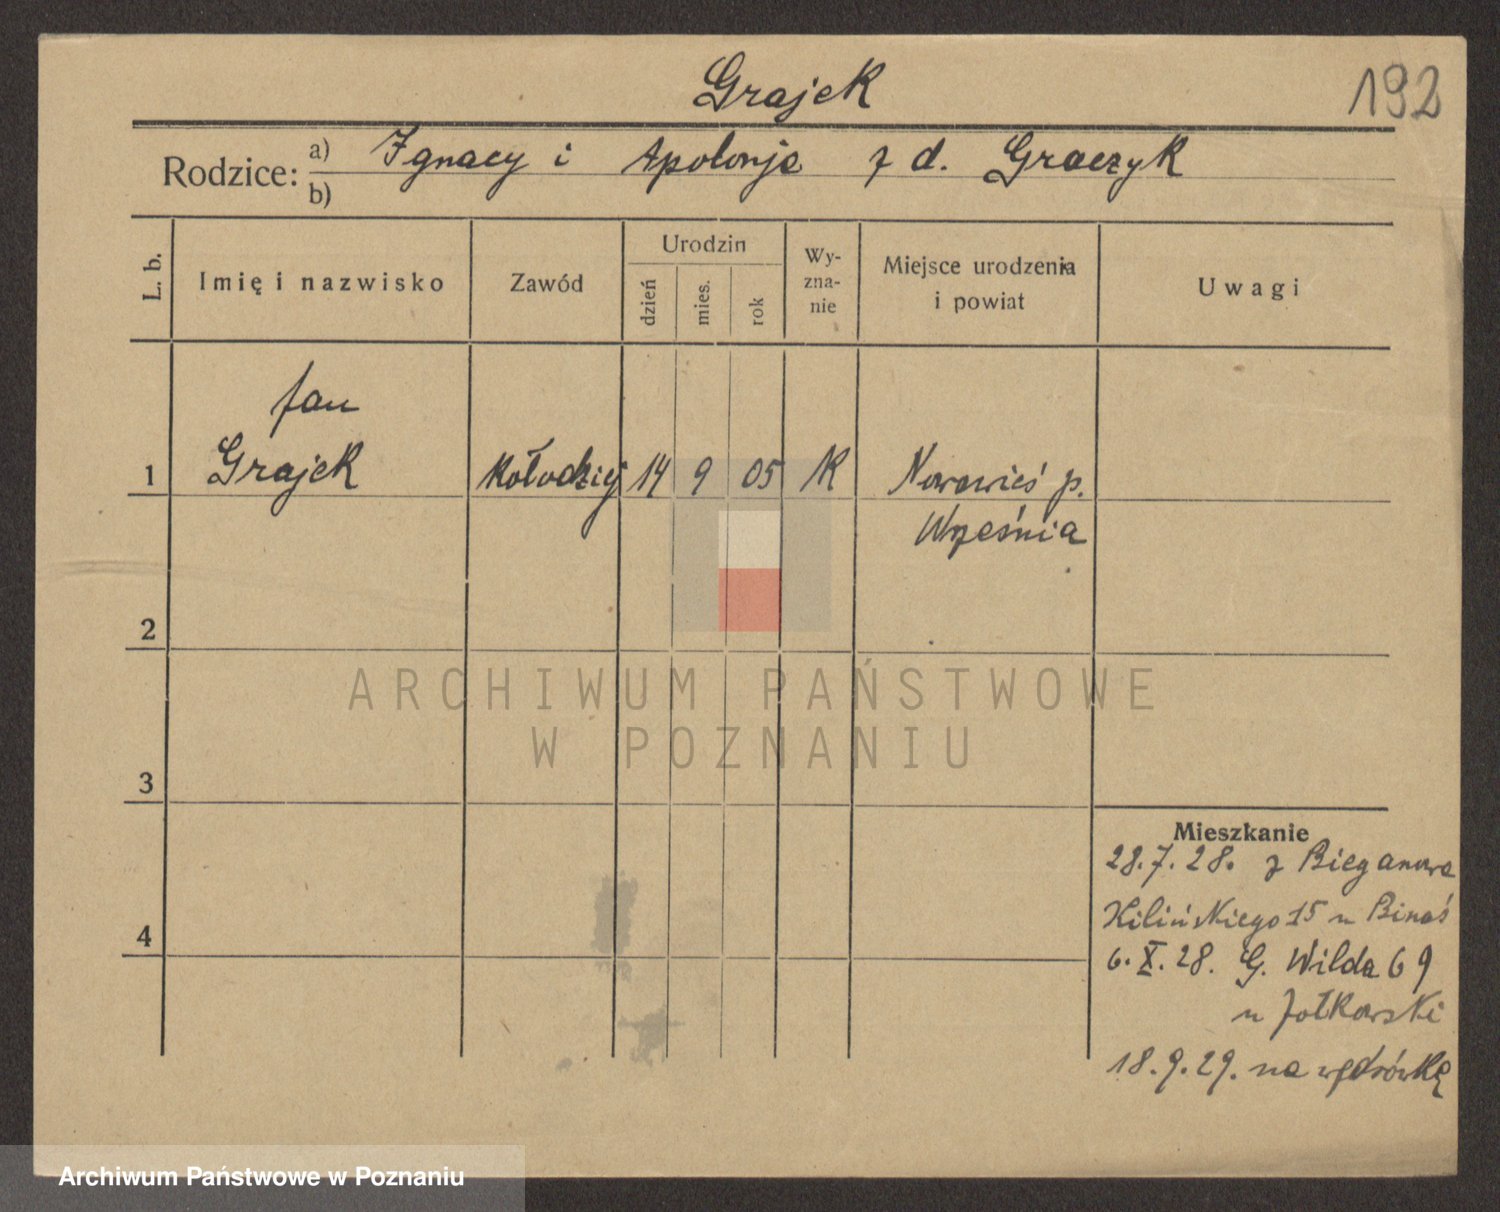 Grajek
192
Rodzice: a) Ignacy i Apolonja z d. Graczyk
b)
L. b.
Imię i nazwisko
Zawód
Urodzin
dzień
mies.
rok
Wy-
zna-
nie
Miejsce urodzenia
i powiat
Uwagi
Jan
1 Grajek Kołodziej 14 9 05 K Nowawieś p.
Września
2
ARCHIWUM PAŃSTWOWE
W POZNANIU
3
Mieszkanie
28.7.28. z Bieganowa
Kilińskiego 15 u Binaś
4
6.X.28. G. Wilda 69
u Żołkowski
18.9.29. na wędrówkę
Archiwum Państwowe w Poznaniu